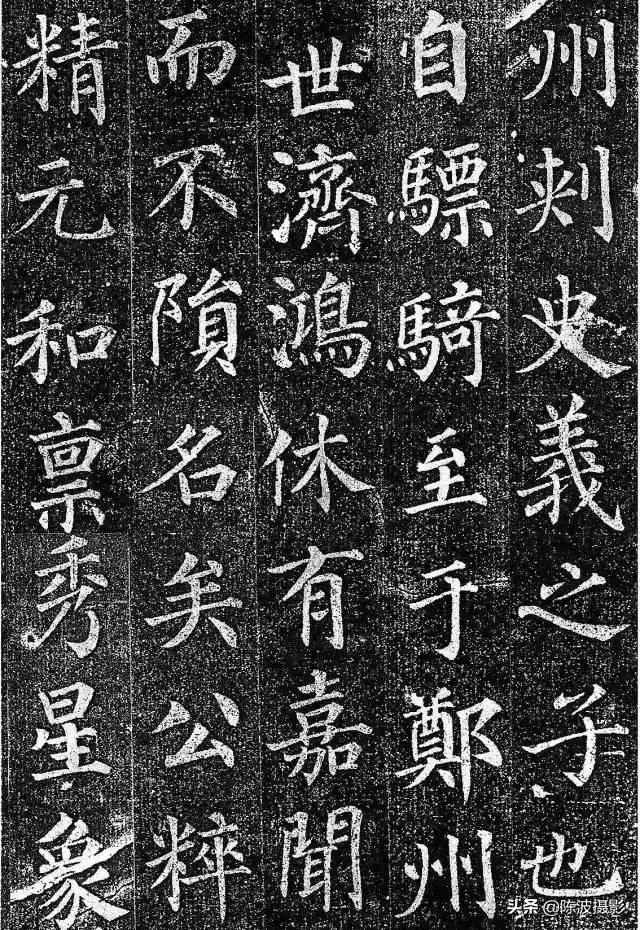 州刾史義之子也
自驃騎至于鄭州
世濟鴻休有嘉聞
而不隕名矣公粹
精元和禀秀星象
头条 @陈波摄影